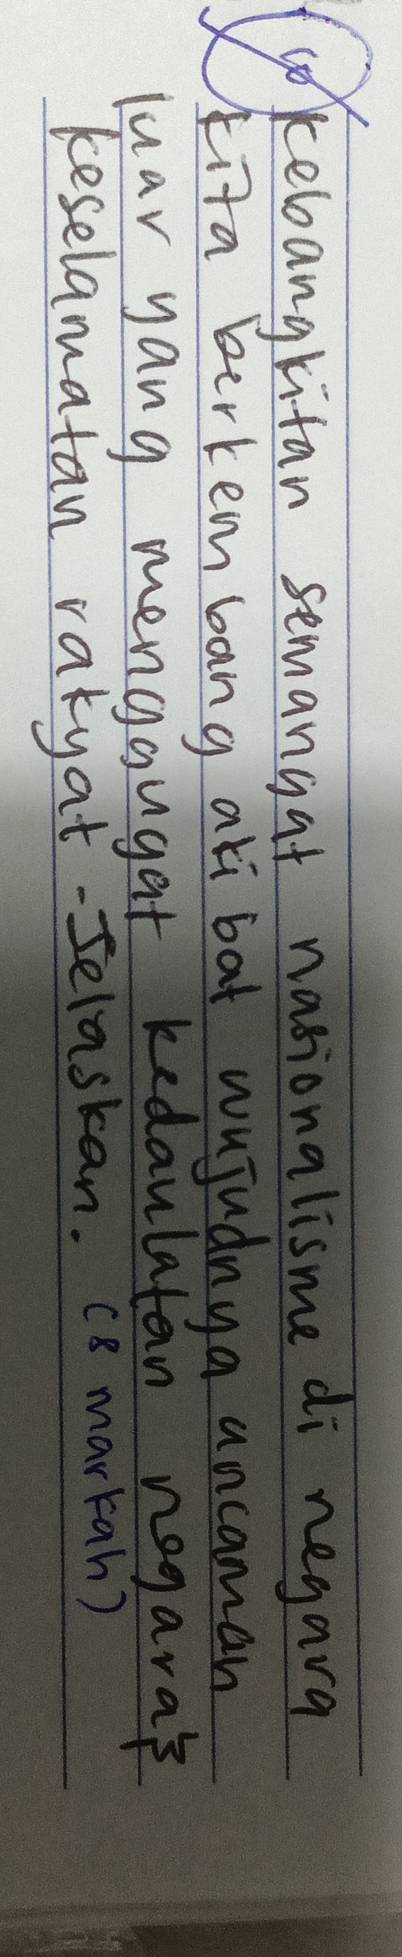 kebangkitan semangat nasionalisme di negara
kita berkembang akibat wujudnya ancaman
luar yang menggugat kedaulatan negara &
keselamatan rakyat - Jelaskan. (8 markah)